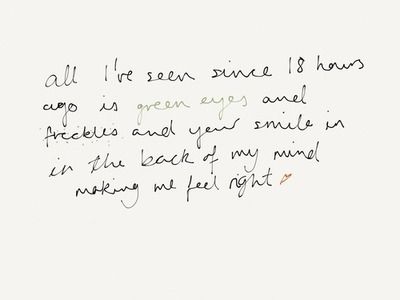 all I've seen since 18 hours
ago is green eyes and
freckles and your smile in
in the back of my mind
making me feel right